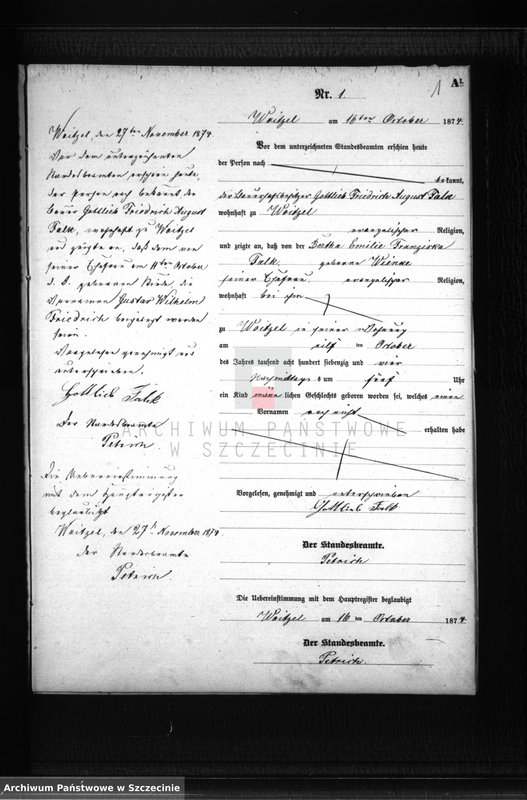 A1.
1
Nr. 1.
Woitzel am 16ten October 1874
Vor dem unterzeichneten Standesbeamten erschien heute
der Person nach
bekannt,
der Bauerhofsbesitzer Gottlieb Friedrich August Falk
wohnhaft zu Woitzel
evangelischer Religion,
und zeigte an, daß von der Bertha Emilie Franziska
Falk geborene Wienke
seiner Ehefrau evangelischer Religion,
wohnhaft bei ihm
zu Woitzel in seiner Wohnung
am eilf ten October
des Jahres tausend acht hundert siebenzig und vier
Nachmittags um fünf Uhr
ein Kind männ lichen Geschlechts geboren worden sei, welches einen
Vornamen noch nicht
erhalten habe
Vorgelesen, genehmigt und unterschrieben
Gottlieb Falk
Der Standesbeamte.
Petrich
Die Uebereinstimmung mit dem Hauptregister beglaubigt
Woitzel am 16 ten October 1874
Der Standesbeamte.
Petrich.
Woitzel, den 27ten November 1874
Vor dem unterzeichneten
Standesbeamten erschien heute,
der Person nach bekannt der
Bauer Gottlieb Friedrich August
Falk, wohnhaft zu Woitzel
und zeigte an, daß dem von
seiner Ehefrau am 11ten October
d. J. geborenen Kinde die
Vornamen Gustav Wilhelm
Friedrich beigelegt worden
seien.
Vorgelesen genehmigt und
unterschrieben.
Gottlieb Falk
Der Standesbeamte
Petrich.
Die Uebereinstimmung
mit dem Hauptregister
beglaubigt
Woitzel, den 27t November 1874
der Standesbeamte
Petrich.
ARCHIWUM PAŃSTWOWE
W SZCZECINIE
Archiwum Państwowe w Szczecinie